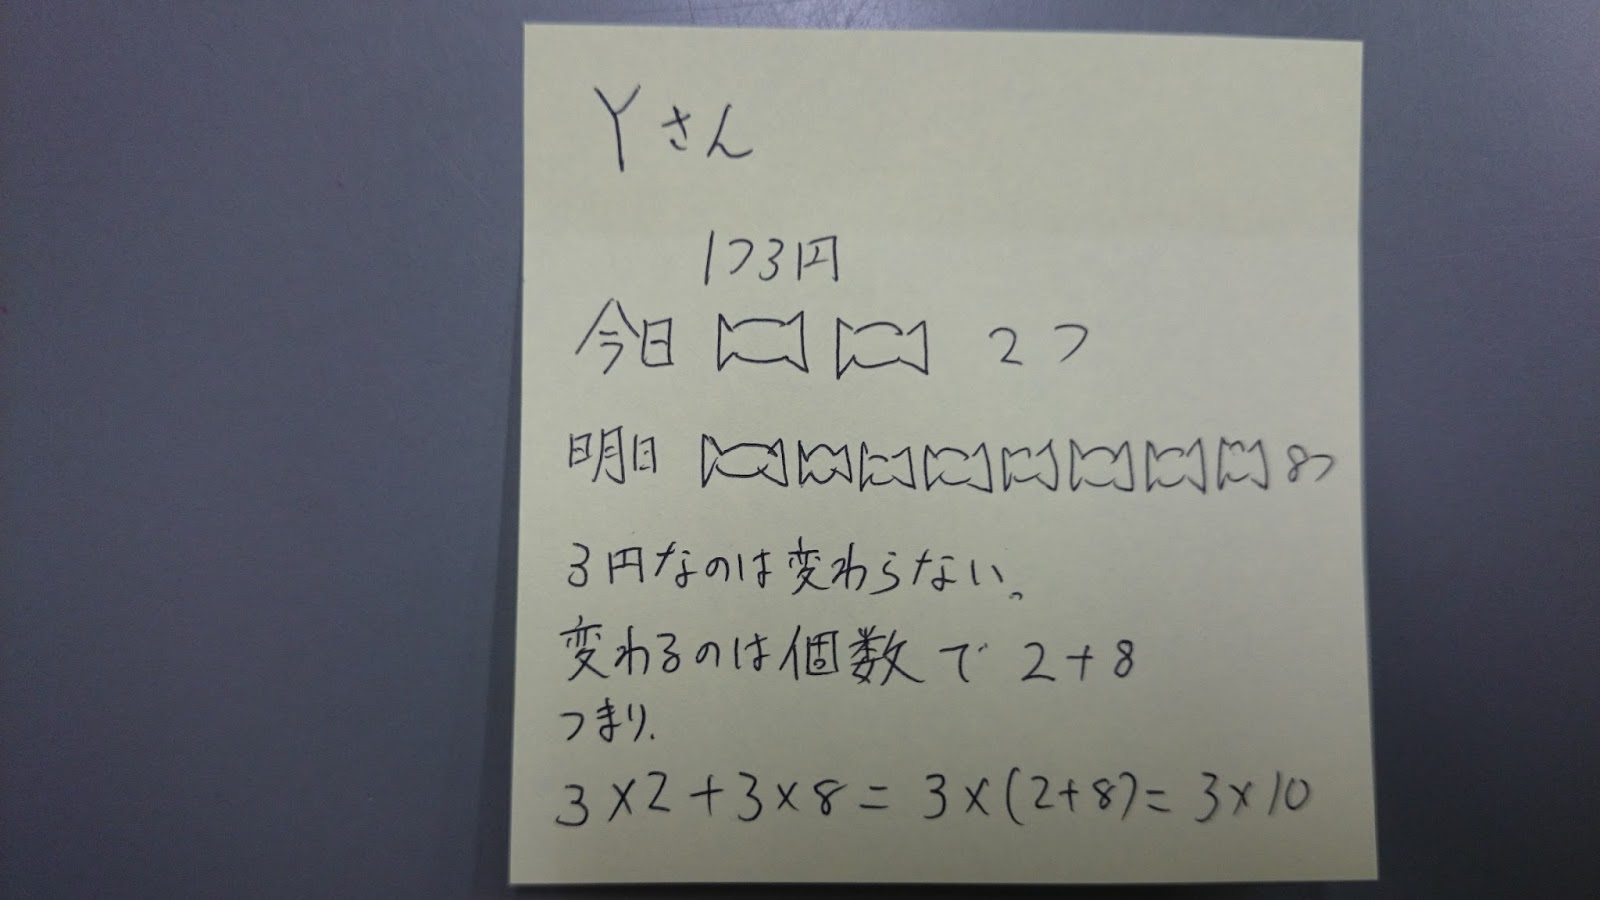 Yさん
1つ3円
今日 2つ
明日 8つ
3円なのは変わらない。
変わるのは個数で 2+8
つまり、
3×2+3×8=3×(2+8)=3×10